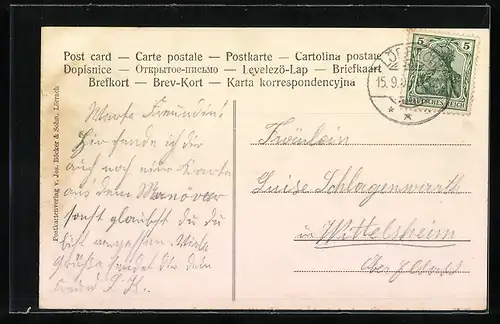 Post card — Carte postale — Postkarte — Cartolina postale
Dopisnice — Открытое-письмо — Levelező-Lap — Briefkaart
Brefkort — Brev-Kort — Karta korrespondencyjna
5 5
DEUTSCHES REICH
15.9.
Postkartenverlag v. Jos. Böcker & Sohn, Lörrach
Werte Freundin!
Hier sende ich dir
auch noch eine Karte
aus dem Manöver
sonst glaubst du du
bist vergessen. Viele
Grüße sendet dir dein
Freund
Fräulein
Luise Schlagenwarth
in Wittelsheim
Ober Elsass